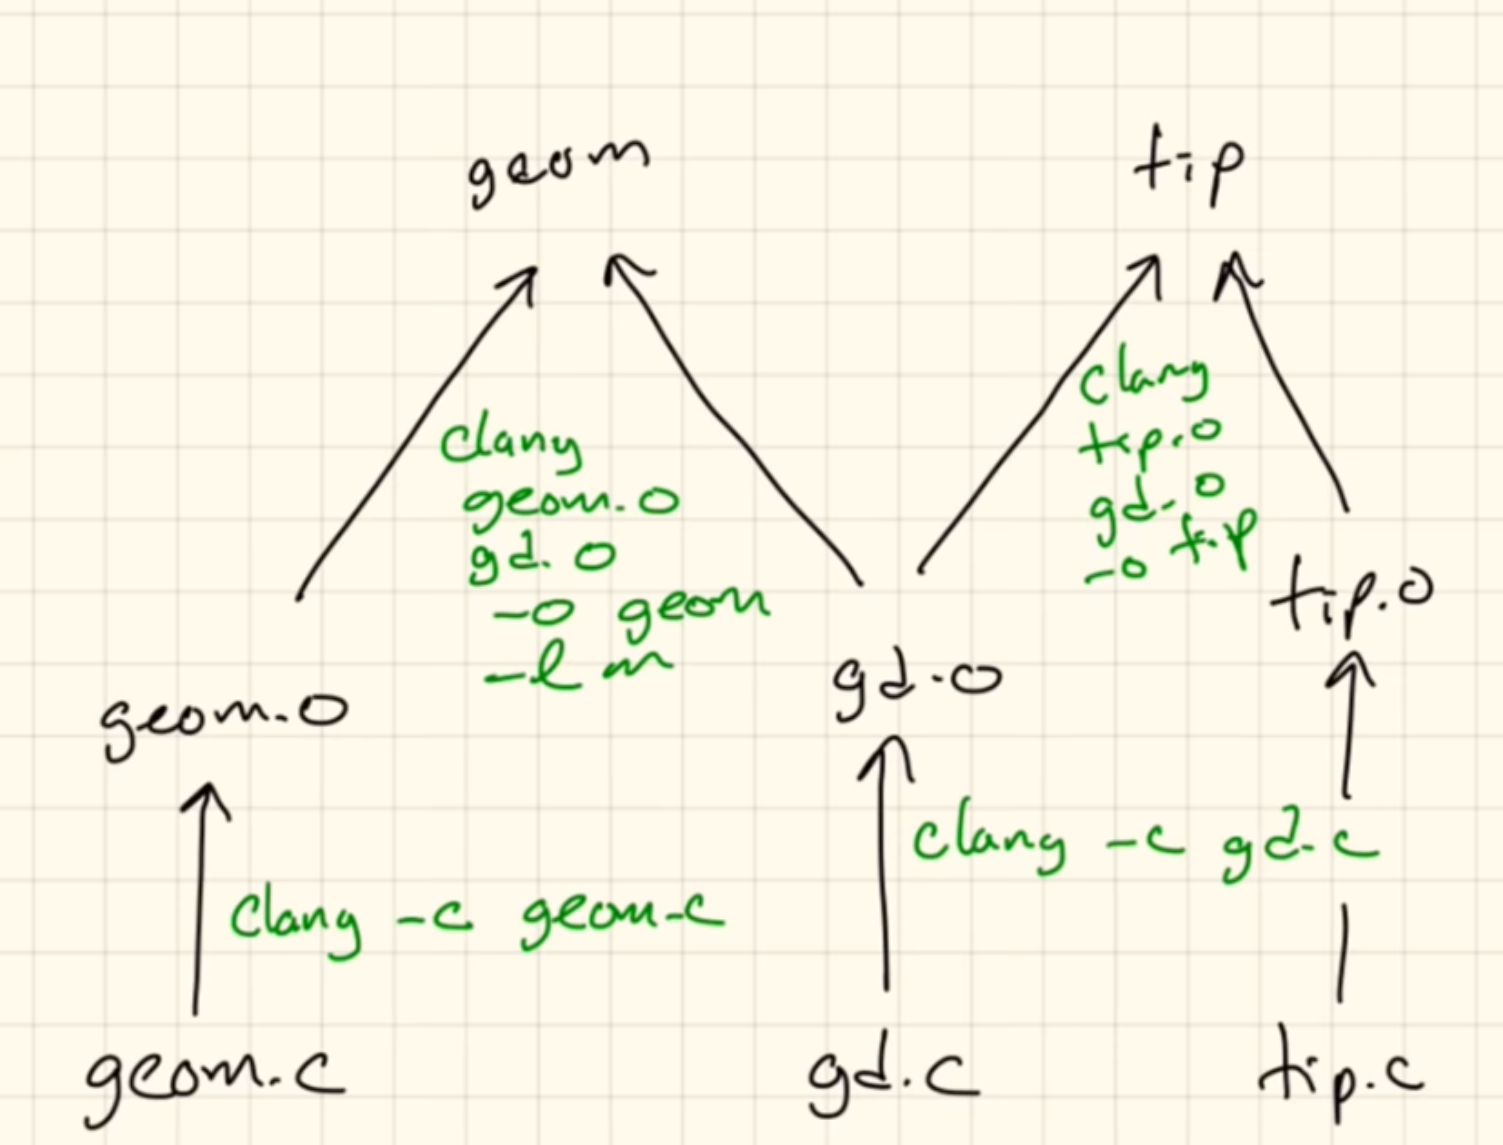 geom
tip
clang
geom.o
gd.o
-o geom
-lm
clang
tip.o
gd.o
-o tip
geom.o
gd.o
tip.o
clang -c geom.c
clang -c gd.c
geom.c
gd.c
tip.c